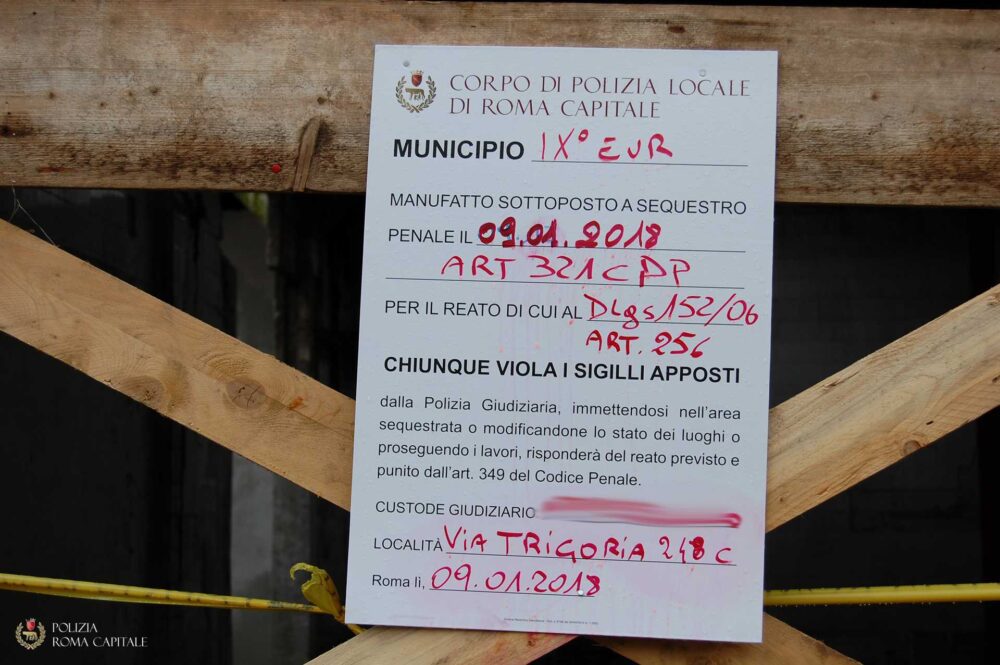 CORPO DI POLIZIA LOCALE
DI ROMA CAPITALE
MUNICIPIO IX° EUR
MANUFATTO SOTTOPOSTO A SEQUESTRO
PENALE IL 09.01.2018
ART 321 C P P
PER IL REATO DI CUI AL DLgs 152/06
ART. 256
CHIUNQUE VIOLA I SIGILLI APPOSTI
dalla Polizia Giudiziaria, immettendosi nell'area
sequestrata o modificandone lo stato dei luoghi o
proseguendo i lavori, risponderà del reato previsto e
punito dall'art. 349 del Codice Penale.
CUSTODE GIUDIZIARIO
LOCALITÀ VIA TRIGORIA 248 C
Roma lì, 09.01.2018
POLIZIA
ROMA CAPITALE